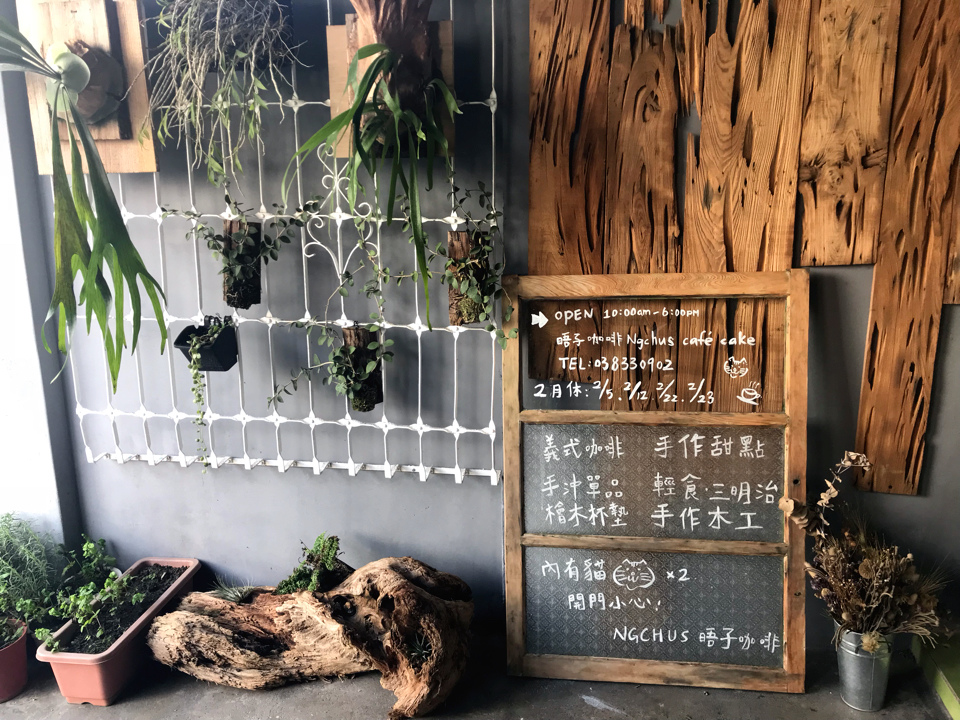 OPEN 10:00am-6:00PM
晤子咖啡 Ngchus café cake
TEL:038330902
2月休: 2/5. 2/12 2/22. 2/23
義式咖啡 手作甜點
手沖單品 輕食·三明治
檜木杯墊 手作木工
內有貓 ×2
開門小心,
NGCHUS 晤子咖啡